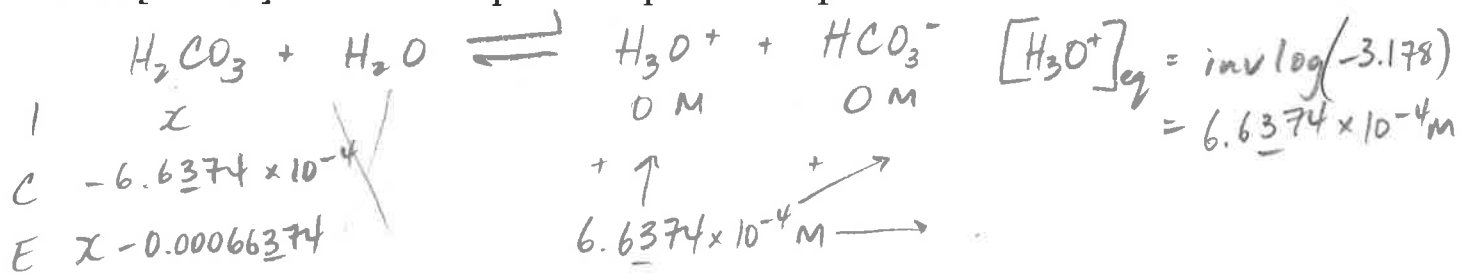 H₂CO₃ + H₂O ⇌ H₃O⁺ + HCO₃⁻ [H₃O⁺]eq = inv log(-3.178)
= 6.6374 × 10⁻⁴ M
I x 0 M 0 M
C -6.6374 × 10⁻⁴ + ↑ + ↗
E x - 0.00066374 6.6374 × 10⁻⁴ M →